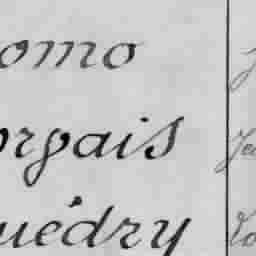 omo
orgais
uédry